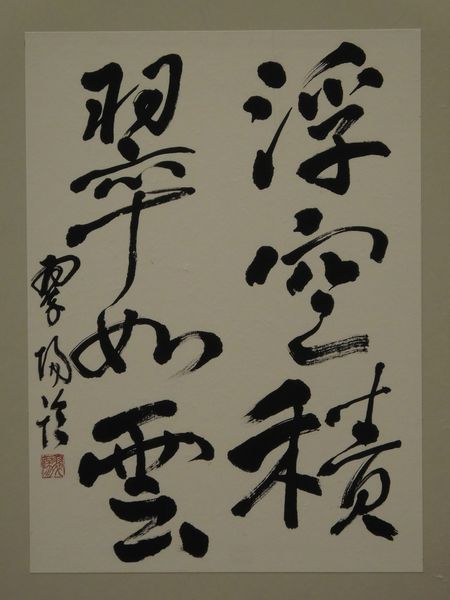 浮空積
翠如雲